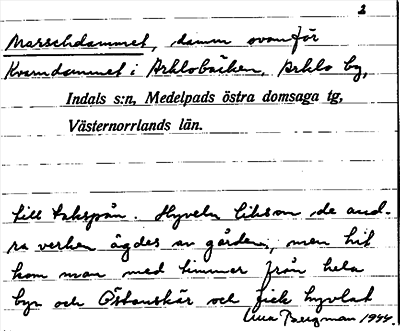 2
Marschdammet, damm ovanför
Kvarndammet i Arklobäcken, Arklo by,
Indals s:n, Medelpads östra domsaga tg,
Västernorrlands län.
till takspån. Hyveln liksom de and-
ra verken ägdes av gården, men hit
kom man med timmer från hela
byn och Östanskär och fick hyvlat
Anna Bergman 1944.